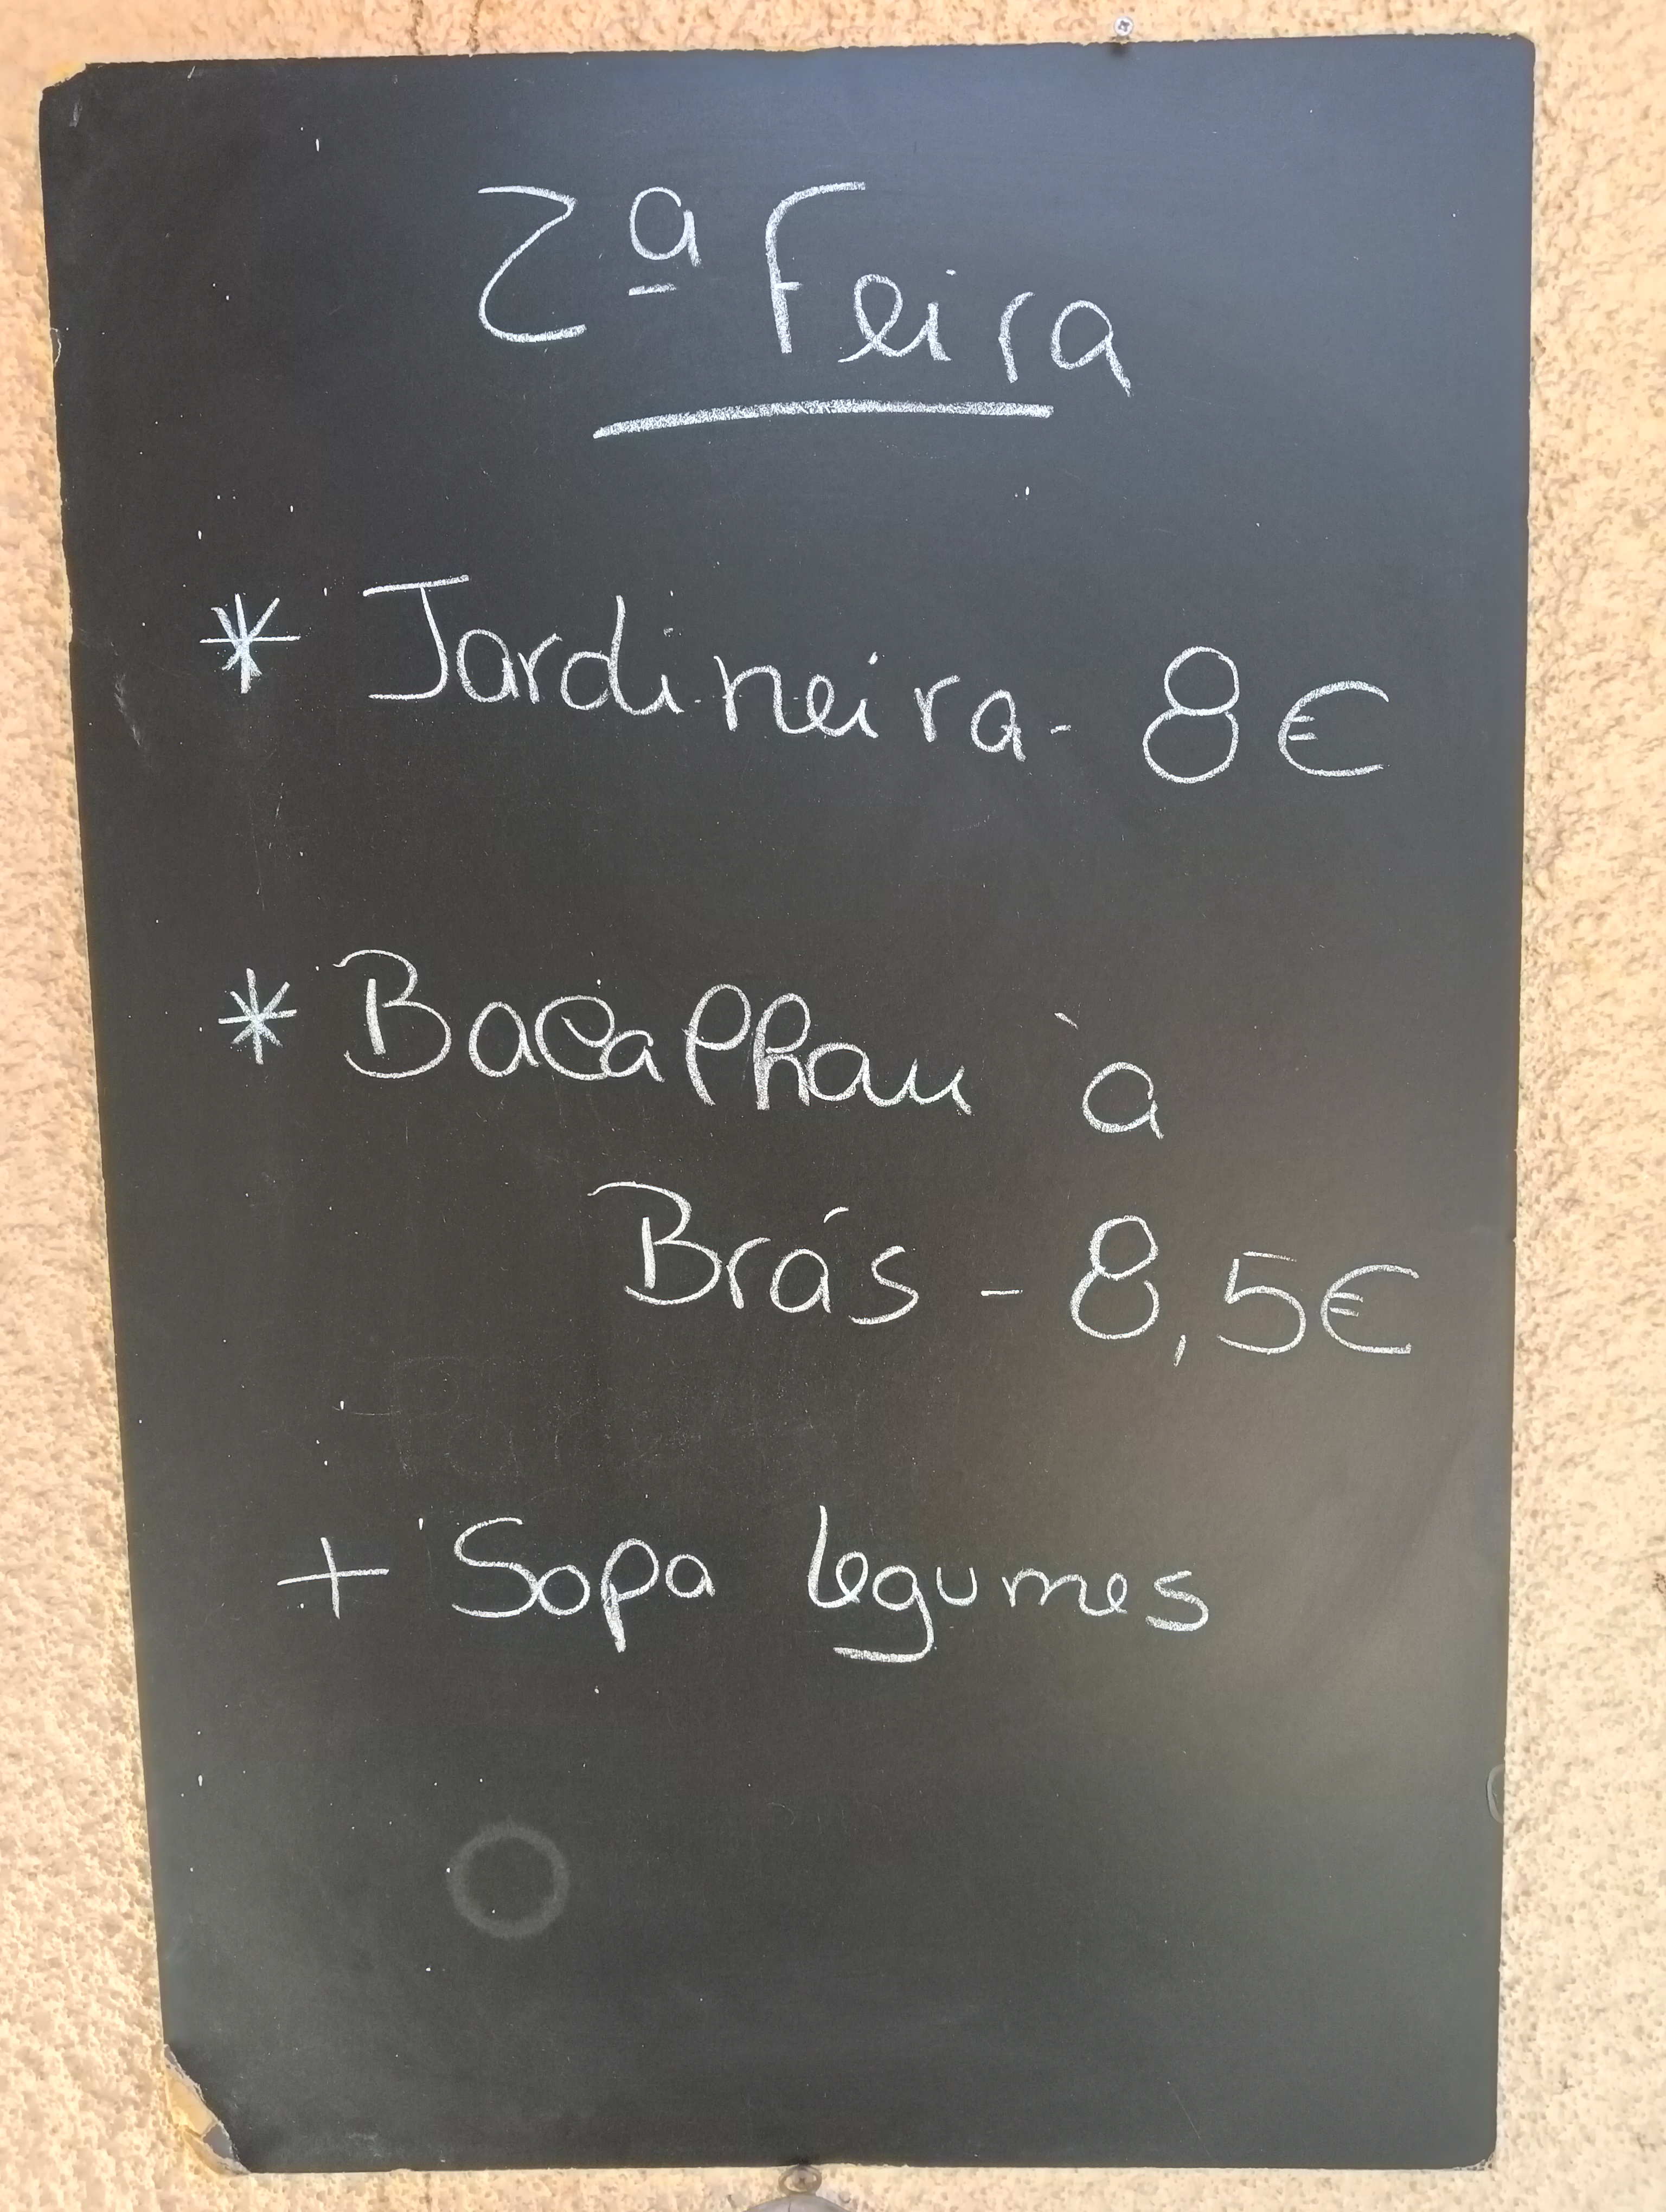 2ª Feira
* Jardineira - 8€
* Bacalhau à
Brás - 8,5€
+ Sopa legumes